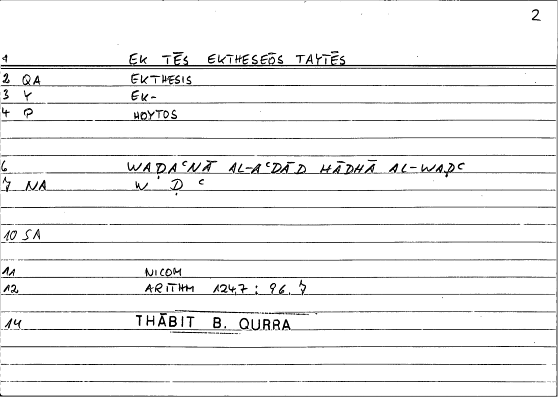 2
1 EK TĒS EKTHESEŌS TAYTĒS
2 QA EKTHESIS
3 Y EK-
4 P HOYTOS
6 WAḌAᶜNĀ AL-AᶜDĀD HĀDHĀ AL-WAḌᶜ
7 NA W Ḍ ᶜ
10 SA
11 NICOM
12 ARITHM 124,7 : 96,7
14 THĀBIT B. QURRA